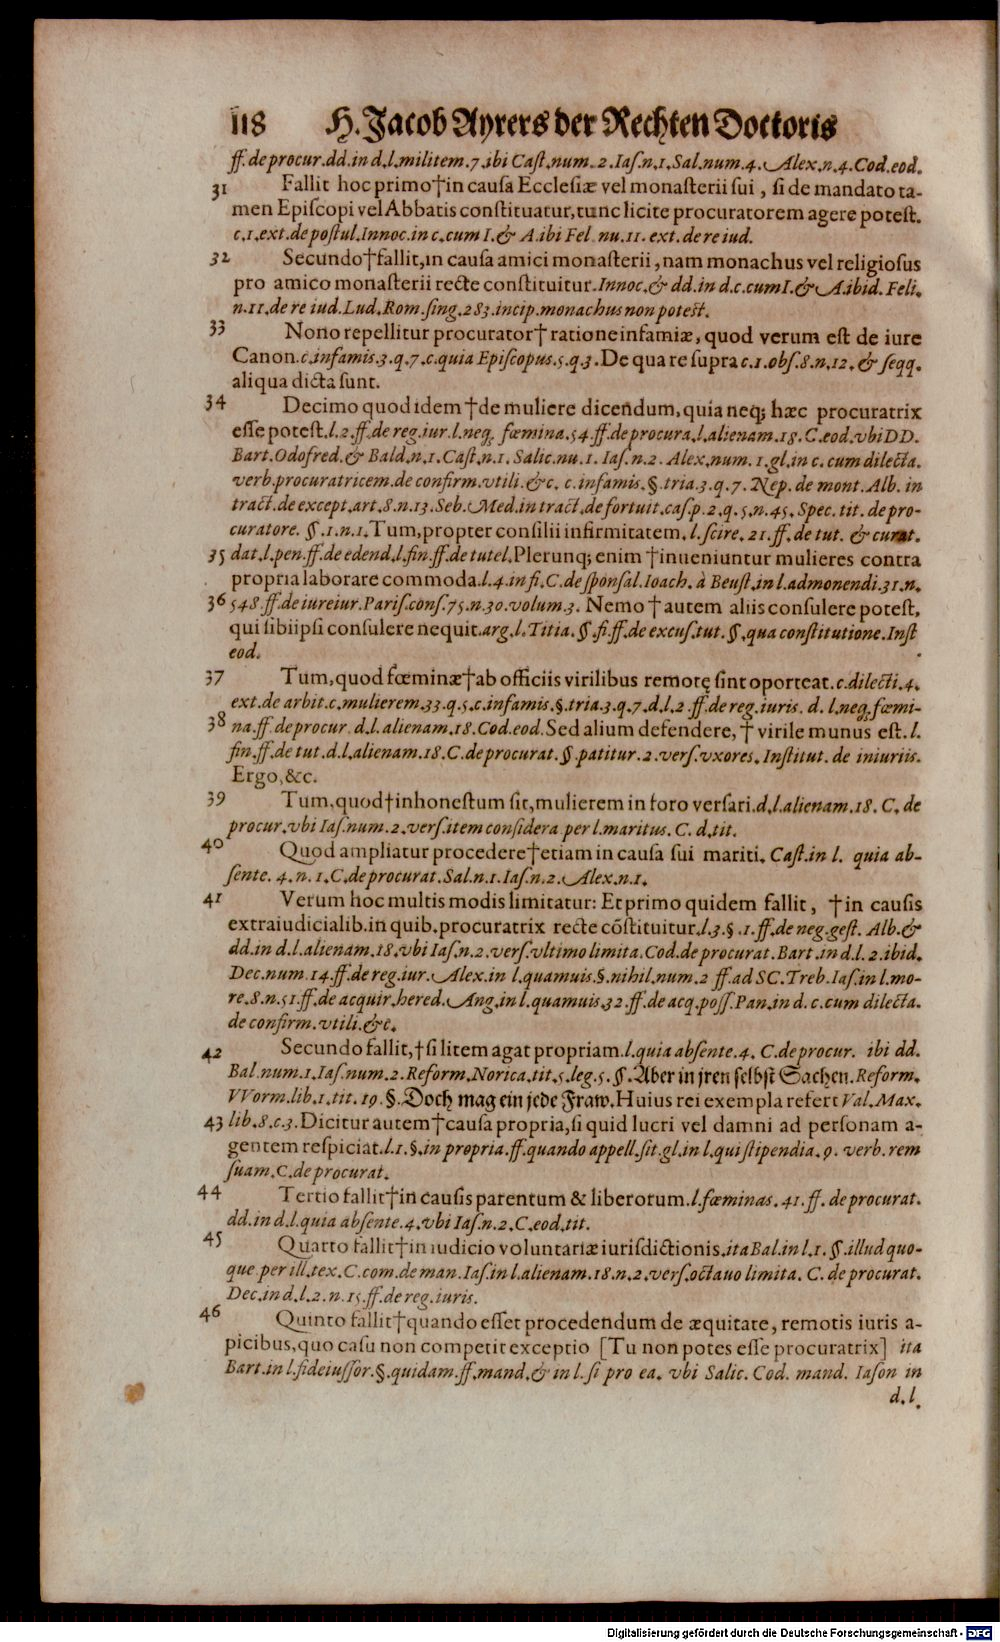 118 H. Jacob Ayrers der Rechten Doctoris
ff. de procur. dd. in d. l. militem. 7. ibi Cast. num. 2. Ias. n. 1. Sal. num. 4. Alex. n. 4. Cod. eod.
31 Fallit hoc primo † in causa Ecclesiæ vel monasterii sui, si de mandato ta-
men Episcopi vel Abbatis constituatur, tunc licite procuratorem agere potest.
c. 1. ext. de postul. Innoc. in c. cum I. & A. ibi Fel. nu. 11. ext. de re iud.
32 Secundo † fallit, in causa amici monasterii, nam monachus vel religiosus
pro amico monasterii recte constituitur. Innoc. & dd. in d. c. cum I. & A. ibid. Feli.
n. 11. de re iud. Lud. Rom. sing. 283. incip. monachus non potest.
33 Nono repellitur procurator † ratione infamiæ, quod verum est de iure
Canon. c. infamis. 3. q. 7. c. quia Episcopus. 5. q. 3. De qua re supra c. 1. obs. 8. n. 12. & seqq.
aliqua dicta sunt.
34 Decimo quod idem † de muliere dicendum, quia neq; hæc procuratrix
esse potest. l. 2. ff. de reg. iur. l. neq. fœmina. 54. ff. de procura. l. alienam. 18. C. eod. vbi DD.
Bart. Odofred. & Bald. n. 1. Cast. n. 1. Salic. nu. 1. Ias. n. 2. Alex. num. 1. gl. in c. cum dilecta.
verb. procuratricem. de confirm. vtili. &c. c. infamis. §. tria. 3. q. 7. Nep. de mont. Alb. in
tract. de except. art. 8. n. 13. Seb. Med. in tract. de fortuit. cas. p. 2. q. 5. n. 45. Spec. tit. de pro-
curatore. §. 1. n. 1. Tum, propter consilii infirmitatem. l. scire. 21. ff. de tut. & curat.
35 dat. l. pen. ff. de edend. l. fin. ff. de tutel. Plerunq; enim † inueniuntur mulieres contra
propria laborare commoda. l. 4. in fi. C. de sponsal. Ioach. à Beust. in l. admonendi. 31. n.
36 548. ff. de iureiur. Paris. cons. 75. n. 30. volum. 3. Nemo † autem aliis consulere potest,
qui sibiipsi consulere nequit. arg. l. Titia. §. fi. ff. de excus. tut. §. qua constitutione. Inst
eod.
37 Tum, quod fœminæ † ab officiis virilibus remotę sint oporteat. c. dilecti. 4.
ext. de arbit. c. mulierem. 33. q. 5. c. infamis. §. tria. 3. q. 7. d. l. 2. ff. de reg. iuris. d. l. neq. fœmi-
38 na. ff. de procur. d. l. alienam. 18. Cod. eod. Sed alium defendere, † virile munus est. l.
fin. ff. de tut. d. l. alienam. 18. C. de procurat. §. patitur. 2. vers. vxores. Institut. de iniuriis.
Ergo, &c.
39 Tum, quod † inhonestum sit, mulierem in foro versari. d. l. alienam. 18. C. de
procur. vbi Ias. num. 2. vers. item considera per l. maritus. C. d. tit.
40 Quod ampliatur procedere † etiam in causa sui mariti. Cast. in l. quia ab-
sente. 4. n. 1. C. de procurat. Sal. n. 1. Ias. n. 2. Alex. n. 1.
41 Verum hoc multis modis limitatur: Et primo quidem fallit, † in causis
extraiudicialib. in quib. procuratrix recte cõstituitur. l. 3. §. 1. ff. de neg. gest. Alb. &
dd. in d. l. alienam. 18. vbi Ias. n. 2. vers. vltimo limita. Cod. de procurat. Bart. in d. l. 2. ibid.
Dec. num. 14. ff. de reg. iur. Alex. in l. quamuis. §. nihil. num. 2 ff. ad SC. Treb. Ias. in l. mo-
re. 8. n. 51. ff. de acquir. hered. Ang. in l. quamuis. 32. ff. de acq. poss. Pan. in d. c. cum dilecta.
de confirm. vtili. &c.
42 Secundo fallit, † si litem agat propriam. l. quia absente. 4. C. de procur. ibi dd.
Bal. num. 1. Ias. num. 2. Reform. Norica. tit. 5. leg. 5. §. Aber in jren selbst Sachen. Reform.
VVorm. lib. 1. tit. 19. §. Doch mag ein jede Fraw. Huius rei exempla refert Val. Max.
43 lib. 8. c. 3. Dicitur autem † causa propria, si quid lucri vel damni ad personam a-
gentem respiciat. l. 1. §. in propria. ff. quando appell. sit. gl. in l. qui stipendia. 9. verb. rem
suam. C. de procurat.
44 Tertio fallit † in causis parentum & liberorum. l. fœminas. 41. ff. de procurat.
dd. in d. l. quia absente. 4. vbi Ias. n. 2. C. eod. tit.
45 Quarto fallit † in iudicio voluntariæ iurisdictionis. ita Bal. in l. 1. §. illud quo-
que per ill. tex. C. com. de man. Ias. in l. alienam. 18. n. 2. vers. octauo limita. C. de procurat.
Dec. in d. l. 2. n. 15. ff. de reg. iuris.
46 Quinto fallit † quando esset procedendum de æquitate, remotis iuris a-
picibus, quo casu non competit exceptio [Tu non potes esse procuratrix] ita
Bart. in l. fideiussor. §. quidam. ff. mand. & in l. si pro ea. vbi Salic. Cod. mand. Iason in
d. l.
Digitalisierung gefördert durch die Deutsche Forschungsgemeinschaft - DFG